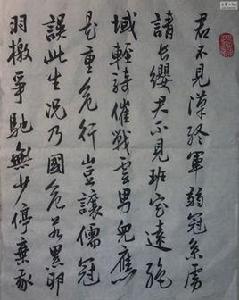 君不見漢終軍弱冠系虜
請長纓君不見班定遠絕
域輕騎催戰雲男兒應
是重危行豈讓儒冠
誤此生況乃國危若累卵
羽檄爭馳無少停棄我